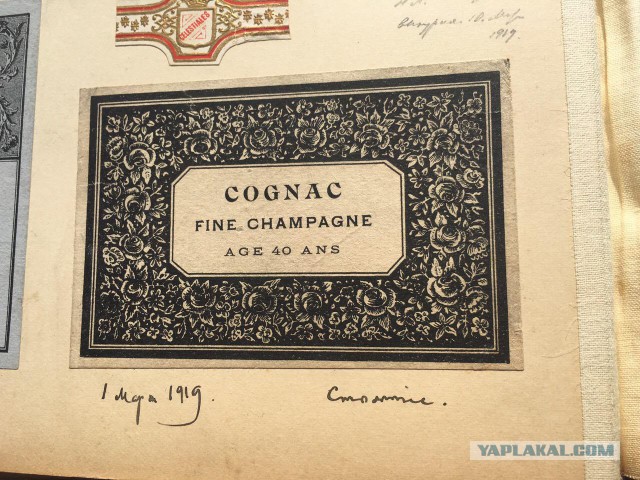 CELESTIALES
1919.
COGNAC
FINE CHAMPAGNE
AGE 40 ANS
1 Мая 1919.
YAPLAKAL.COM